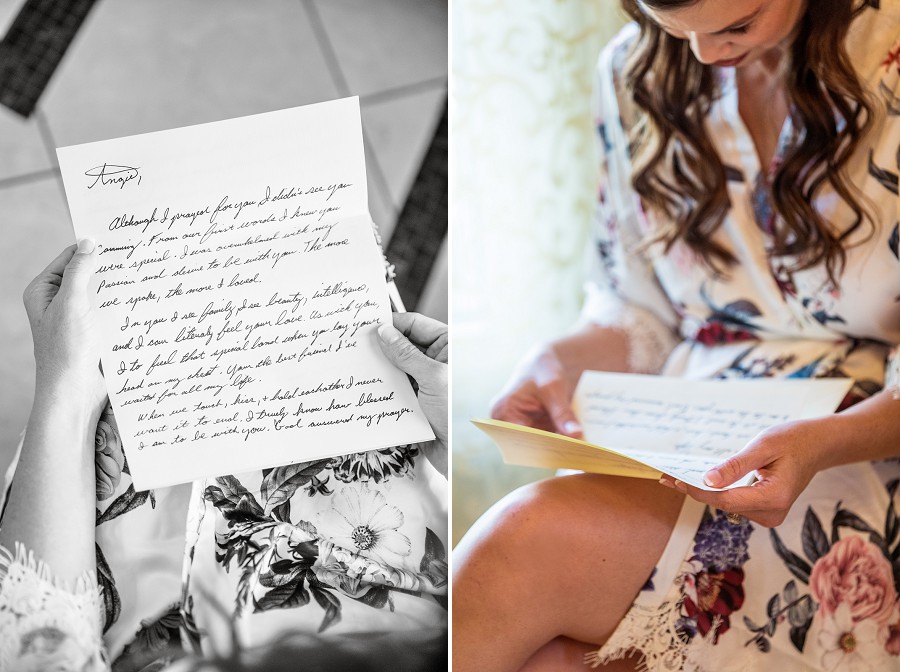 Angie,
Although I prayed for you I didn't see you
Comming. From our first words I knew you
were special. I was overwhelmed with my
Passion and desire to be with you. The more
we spoke, the more I loved.
In you I see family, I see beauty, intelligence,
and I can literaly feel your love. As with you,
I to feel that special bond when you lay your
head on my chest. Your the best friend I've
waited for all my life.
When we touch, kiss, + hold eachother I never
want it to end. I truely know how blessed
I am to be with you. God answered my prayer.